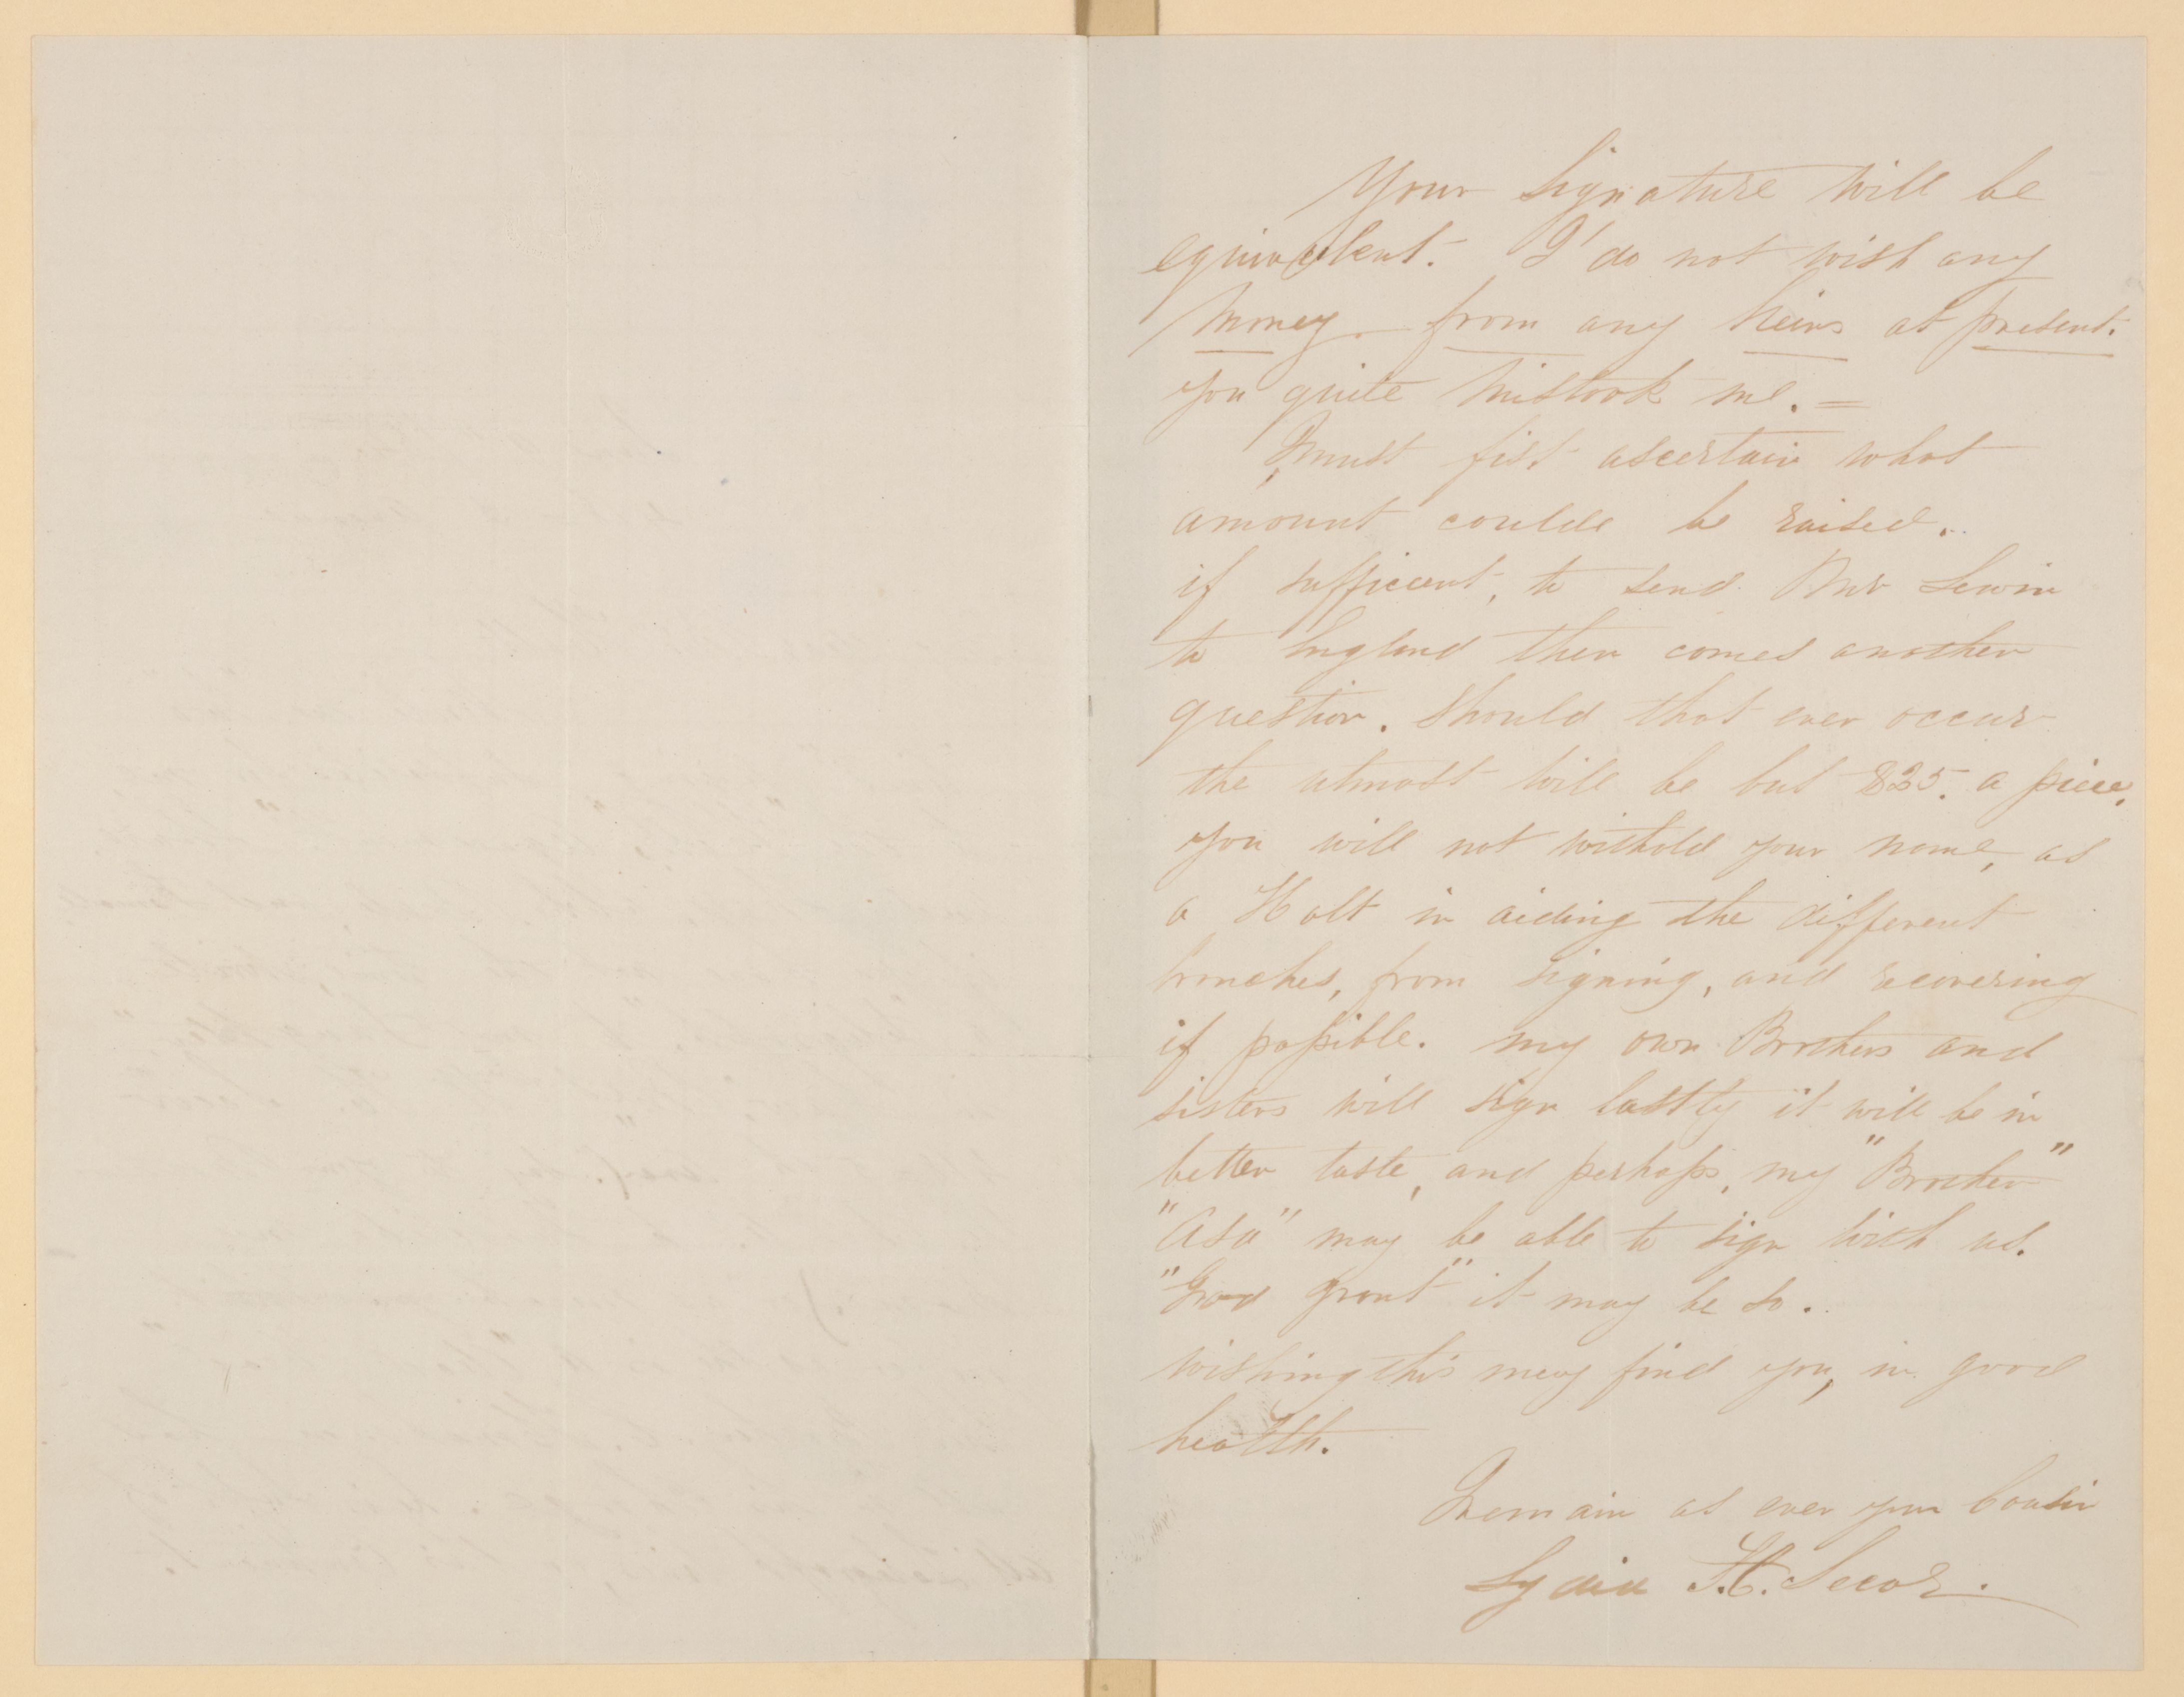 Your Signature will be
equivalent. I do not wish any
money from any heirs at present.
you quite mistook me. =
I must fist ascertain what
amount coulde be raised.
if sufficent, to send Mr Lewin
to England then comes another
question. Should that ever occur
the utmost will be but $25. a piece,
you will not withold your name, as
a Holt in aiding the different
branches, from signing, and recovering
if possible. my own Brothers and
sisters will sign lastly it will be in
better taste, and perhaps, my "Brother"
"Asa" may be able to sign with us.
"God grant" it may be so.
wishing this may find you, in good
health.
I remain as ever your Cousin
Lydia H. Secor.